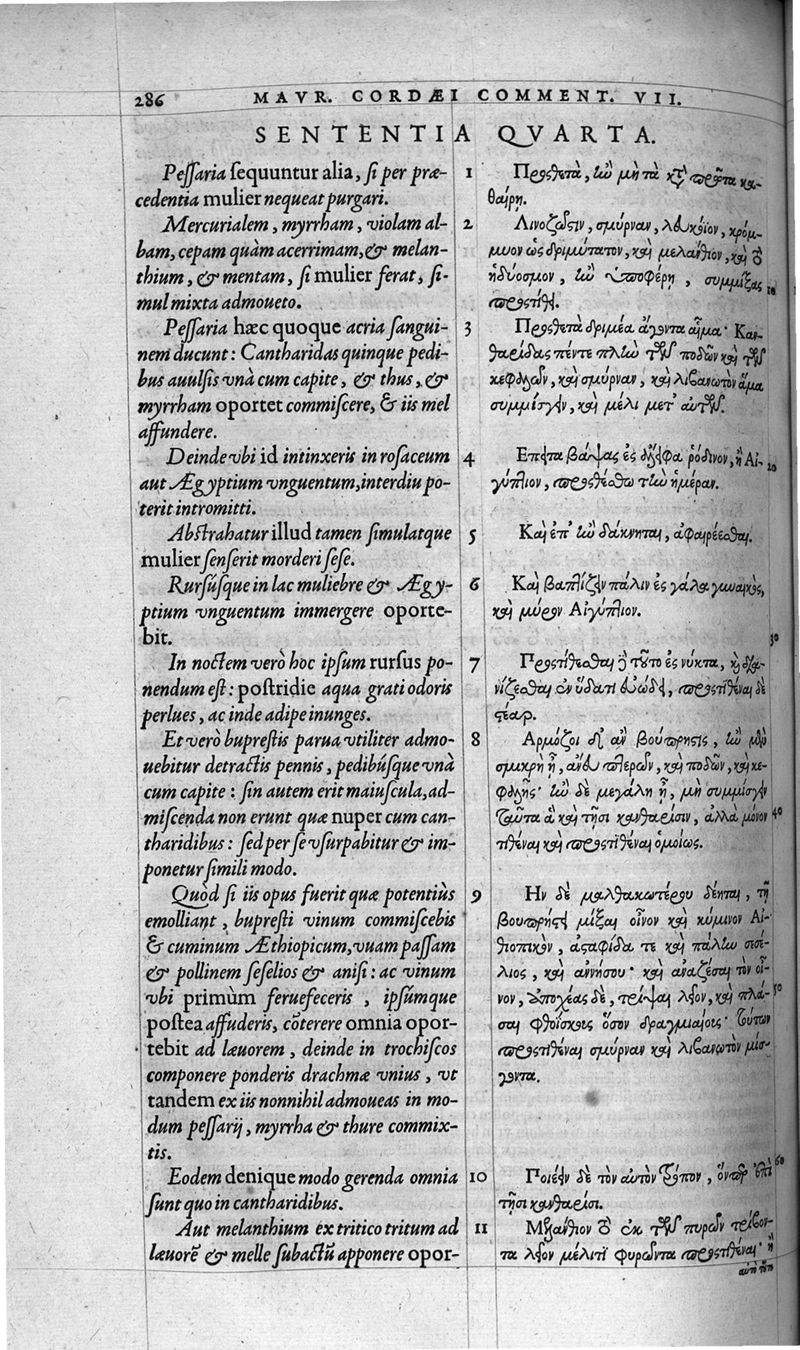 286 MAVR. CORDÆI COMMENT. VII.
SENTENTIA QVARTA.
Pessaria sequuntur alia, si per præ-
cedentia mulier nequeat purgari.
Mercurialem, myrrham, violam al-
bam, cepam quàm acerrimam, & melan-
thium, & mentam, si mulier ferat, si-
mul mixta admoueto.
Pessaria hæc quoque acria sangui-
nem ducunt: Cantharidas quinque pedi-
bus auulsis vnà cum capite, & thus, &
myrrham oportet commiscere, & iis mel
affundere.
Deinde vbi id intinxeris in rosaceum
aut Ægyptium vnguentum, interdiu po-
terit intromitti.
Abstrahatur illud tamen simulatque
mulier senserit morderi sese.
Rursúsque in lac muliebre & Ægy-
ptium vnguentum immergere oporte-
bit.
In noctem verò hoc ipsum rursus po-
nendum est: postridie aqua grati odoris
perlues, ac inde adipe inunges.
Et verò buprestis parua vtiliter admo-
uebitur detractis pennis, pedibúsque vnà
cum capite: sin autem erit maiuscula, ad-
miscenda non erunt quæ nuper cum can-
tharidibus: sed per se vsurpabitur & im-
ponetur simili modo.
Quòd si iis opus fuerit quæ potentiùs
emolliant, bupresti vinum commiscebis
& cuminum Æthiopicum, vuam passam
& pollinem seselios & anisi: ac vinum
vbi primùm feruefeceris, ipsúmque
postea affuderis, cõterere omnia opor-
tebit ad læuorem, deinde in trochiscos
componere ponderis drachmæ vnius, vt
tandem ex iis nonnihil admoueas in mo-
dum pessarij, myrrha & thure commix-
tis.
Eodem denique modo gerenda omnia
sunt quo in cantharidibus.
Aut melanthium ex tritico tritum ad
læuorẽ & melle subactũ apponere opor-
1 Προσθετὰ, ἢν μὴ τὰ πρῶτα κα-
θαίρῃ.
2 Λινόζωστιν, σμύρναν, λευκόϊον, κρόμ-
μυον ὡς δριμύτατον, καὶ μελάνθιον, καὶ
ἡδύοσμον, ἢν ὑποφέρῃ, συμμίξας
προστίθει.
3 Προσθετὰ δριμέα ἄγοντα αἷμα· Καν-
θαρίδας πέντε πλὴν τῶν ποδῶν καὶ τῶν
κεφαλέων, καὶ σμύρναν, καὶ λιβανωτὸν ἅμα
συμμίσγειν, καὶ μέλι μετ' αὐτῶν.
4 Επειτα βάψας ἐς ἄλειφα ῥόδινον, ἢ Αἰ-
γύπτιον, προσθέσθω τὴν ἡμέραν.
5 Καὶ ἐπ' ἢν δάκνηται, ἀφαιρέεσθαι.
6 Καὶ βαπτίζειν πάλιν ἐς γάλα γυναικὸς,
καὶ μύρον Αἰγύπτιον.
7 Προστίθεσθαι δὲ τοῦτο ἐς νύκτα, καὶ δια-
νίζεσθαι ἐν ὕδατι εὐώδει, προστιθέναι δὲ
στέαρ.
8 Αρμόζοι δ' ἂν βούπρηστις, ἢν μὲν
σμικρὴ ᾖ, ἄνευ πτερῶν, καὶ ποδῶν, καὶ κε-
φαλῆς· ἢν δὲ μεγάλη ᾖ, μὴ συμμίσγειν
ταῦτα ἃ καὶ τῇσι κανθαρίσιν, ἀλλὰ μόνον
τιθέναι καὶ προστιθέναι ὁμοίως.
9 Ην δὲ μαλθακωτέρου δέηται, τῇ
βουπρήστει μίξαι οἶνον καὶ κύμινον Αἰ-
θιοπικὸν, ἀσταφίδα τε καὶ πάλην σεσέ-
λιος, καὶ ἀννήσου· καὶ ἀναζέσαι τὸν οἶ-
νον, ἀποχέας δὲ, τρίψαι λεῖον, καὶ πλά-
σαι φθοΐσκους ὅσον δραχμιαίους· τούτων
προστιθέναι σμύρναν καὶ λιβανωτὸν μίσ-
γοντα.
10 Ποιέειν δὲ τὸν αὐτὸν τρόπον, ὅνπερ ἐπὶ
τῇσι κανθαρίσι.
11 Μελάνθιον ἐκ τῶν πυρῶν τρίβον-
τα λεῖον μέλιτι φυρῶντα προστιθέναι· ἢ
10
20
30
40
50
60